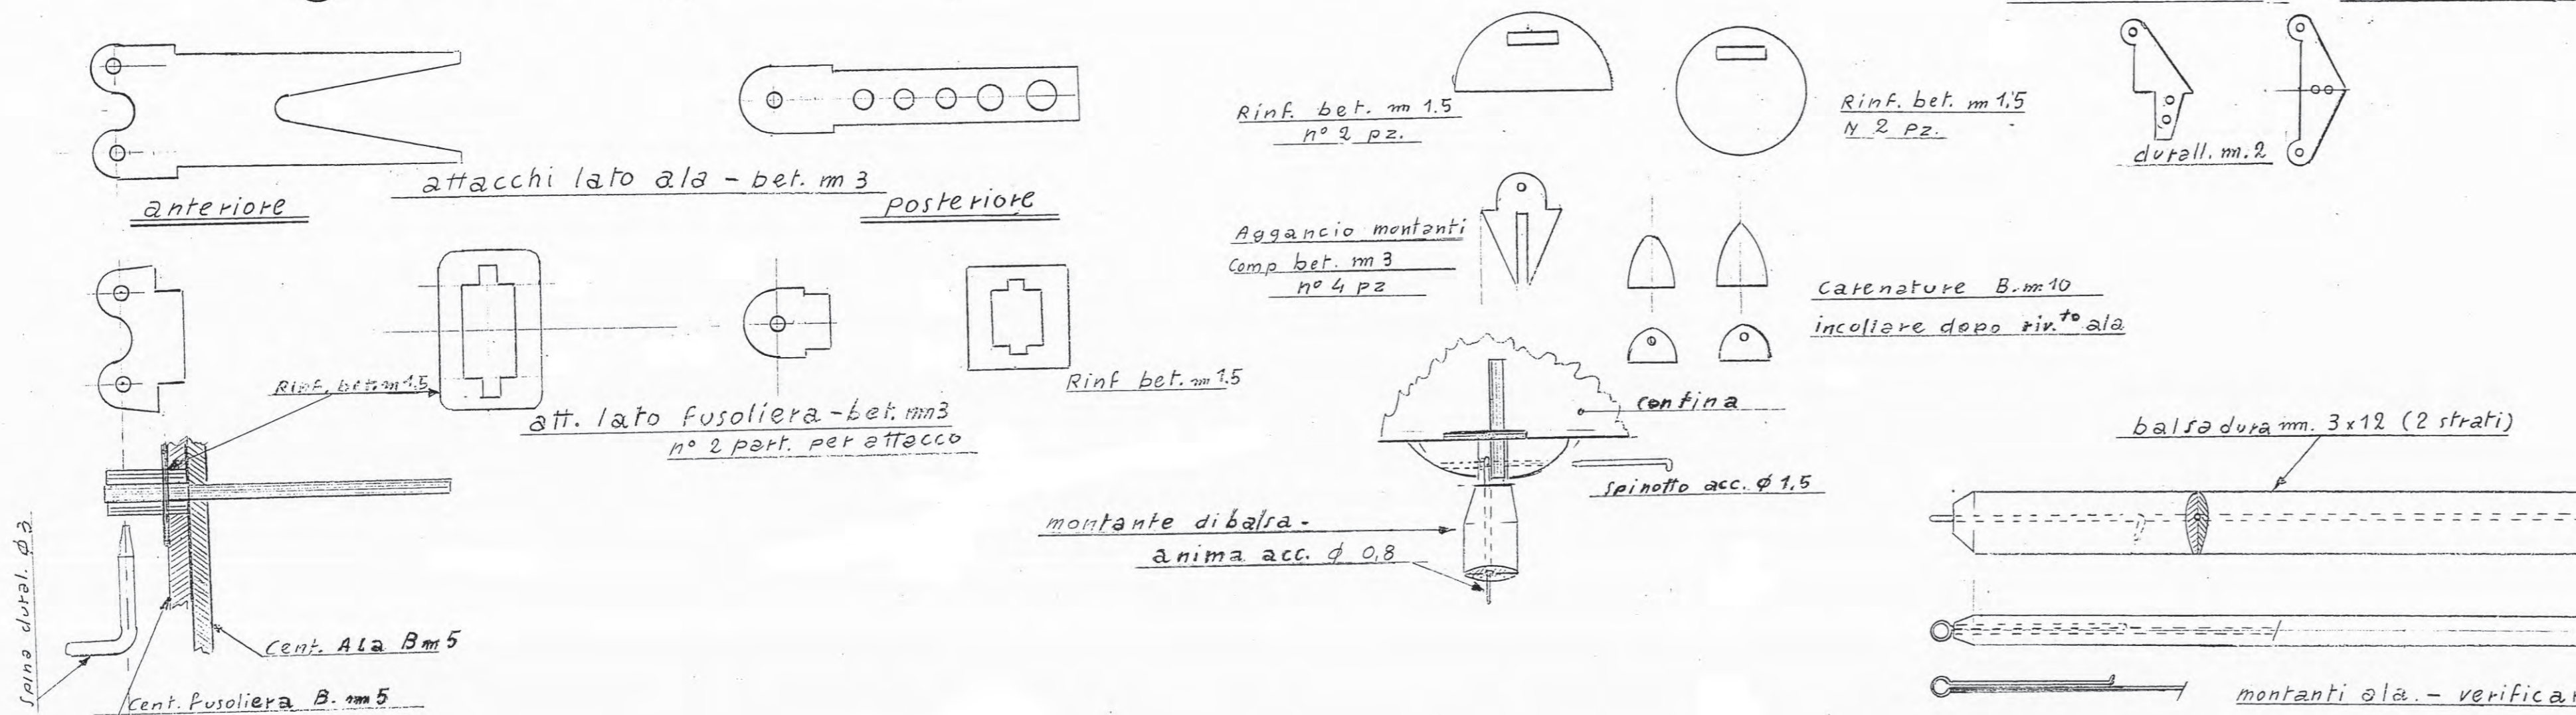 attacchi lato ala - bet. mm 3
anteriore
posteriore
Rinf. bet. mm 1.5
att. lato fusoliera - bet. mm3
n° 2 part. per attacco
Rinf bet. mm 1.5
spina dural. φ 3
Cent. Ala B mm 5
Cent. fusoliera B. mm 5
Rinf. bet. mm 1.5
n° 2 pz.
Rinf. bet. mm 1.5
N 2 Pz.
durall. m. 2
Aggancio montanti
Comp bet. mm 3
n° 4 pz
Carenature B. m. 10
incollare dopo riv.to ala
centina
spinotto acc. φ 1,5
montante di balsa -
anima acc. φ 0,8
balsa dura mm. 3x12 (2 strati)
montanti ala. - verificar